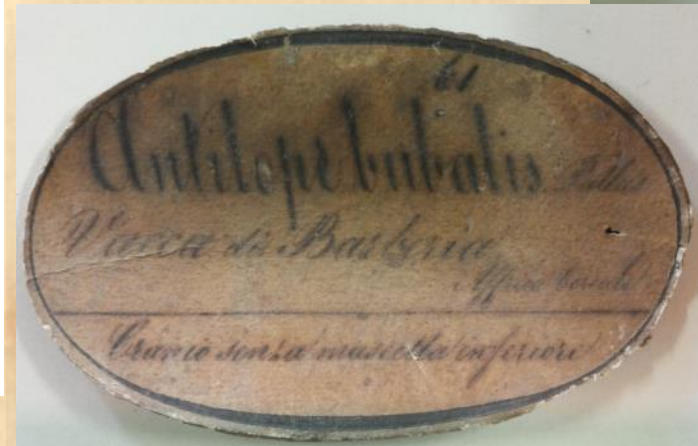 61
Antilope bubalis Pallas
Vacca di Barberia
Affrica boreale
Cranio senza mascella inferiore